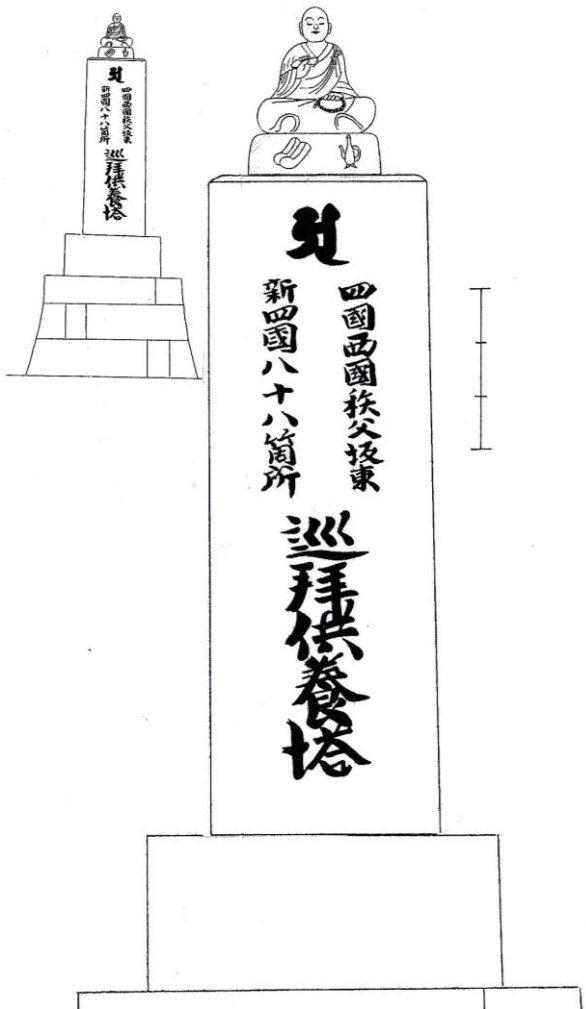 四國西國秩父坂東
新四國八十八箇所
巡拜供養塔
四國西國秩父坂東
新四國八十八箇所
巡拜供養塔